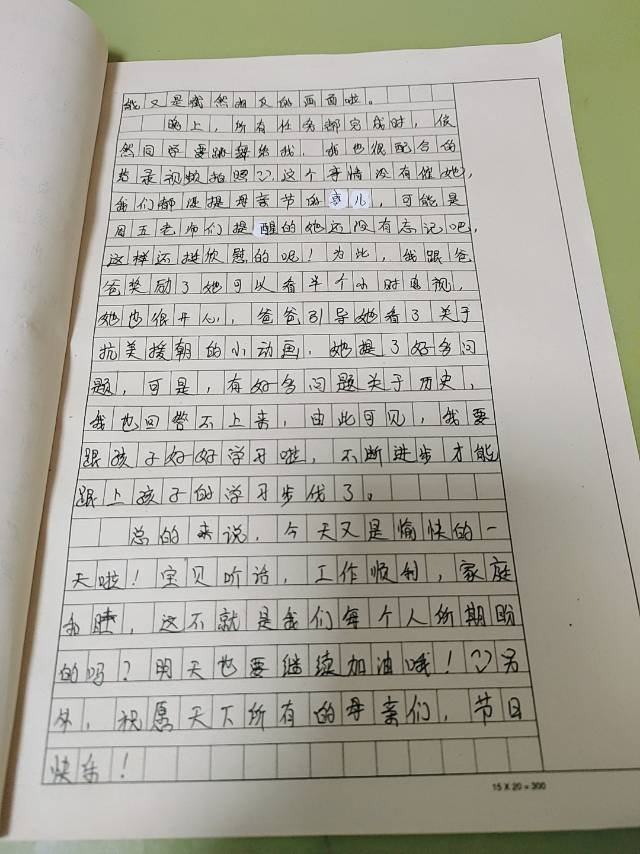 能又是截然相反的画面啦。
晚上，所有任务都完成时，依
然同学要跳舞给我，我也很配合的
给录视频拍照。这个事情没有催她，
我们都没提母亲节的事儿，可能是
周五老师们提醒的她还没有忘记吧，
这样还挺欣慰的呢！为此，我跟爸
爸奖励了她可以看半个小时电视，
她也很开心，爸爸引导她看了关于
抗美援朝的小动画，她提了好多问
题，可是，有好多问题关于历史，
我也回答不上来，由此可见，我要
跟孩子好好学习啦，不断进步才能
跟上孩子的学习步伐了。
总的来说，今天又是愉快的一
天啦！宝贝听话，工作顺利，家庭
和睦，这不就是我们每个人所期盼
的吗？明天也要继续加油哦！另
外，祝愿天下所有的母亲们，节日
快乐！
15 X 20 = 300